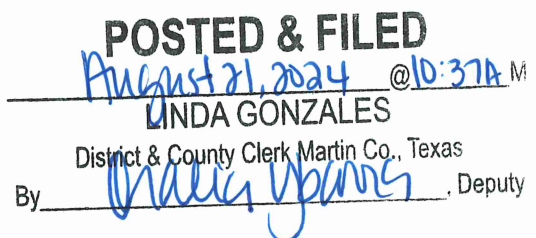 POSTED & FILED
August 21, 2024 @ 10:37A M
LINDA GONZALES
District & County Clerk Martin Co., Texas
By , Deputy